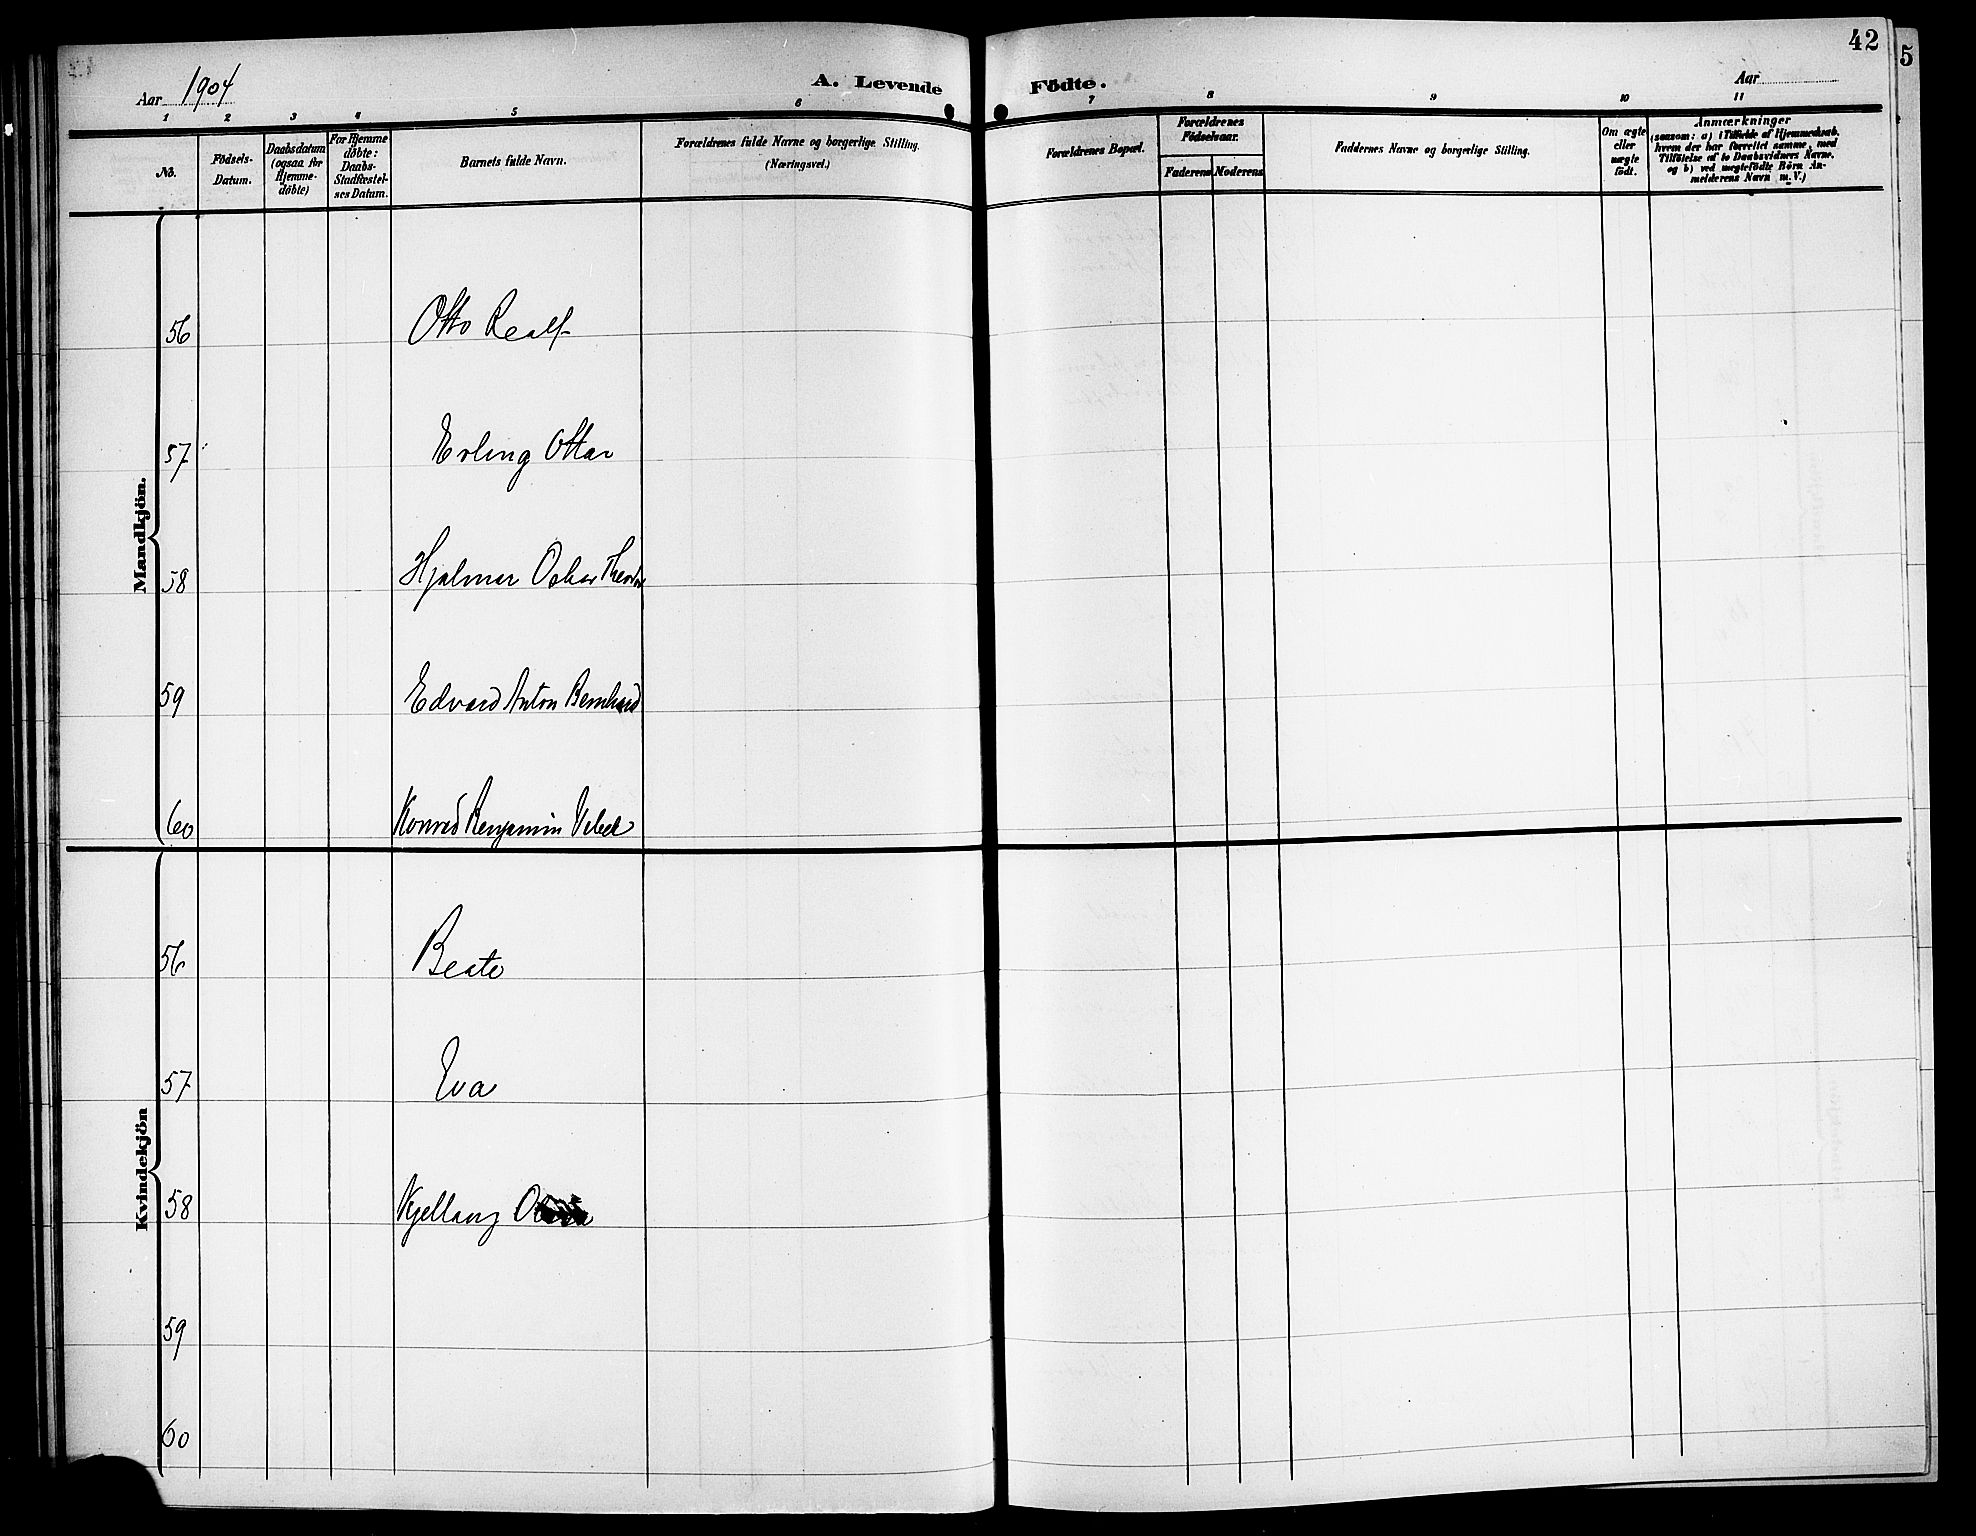 42
5
Aar 1904
A. Levende Födte.
Aar
1 2 3 4 5 6 7 8 9 10 11
No.
Födsels-
Datum.
Daabsdatum
(ogsaa for
Hjemme-
döbte)
For Hjemme
döbte:
Daabs-
Stadfæstel-
ses Datum.
Barnets fulde Navn.
Forældrenes fulde Navne og borgerlige Stilling.
(Næringsvei.)
Forældrenes Bopæl.
Forældrenes
Födselsaar.
Faderens
Moderens
Faddernes Navne og borgerlige Stilling.
Om ægte
eller
uægte
födt.
Anmærkninger
(saasom: a) i Tilfælde af Hjemmedaab,
hvem der har forrettet samme, med
Tilföielse af to Daabsvidners Navne,
og b) ved uægtefödte Börn An-
melderens Navn m. V.)
Mandkjön.
56 Otto Realf
57 Erling Ottar
58 Hjalmar Oskar Theodor
59 Edvard Anton Bernhard
60 Konrad Benjamin
Kvindekjön
56 Beate
57 Eva
58 Kjellaug
59
60